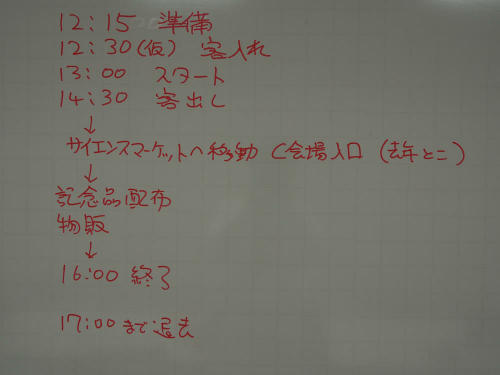 12:15 準備
12:30(仮) 客入れ
13:00 スタート
14:30 客出し
↓
サイエンスマーケットへ移動 C会場入口 (去年とこ)
↓
記念品配布
物販
↓
16:00 終了
17:00まで退去